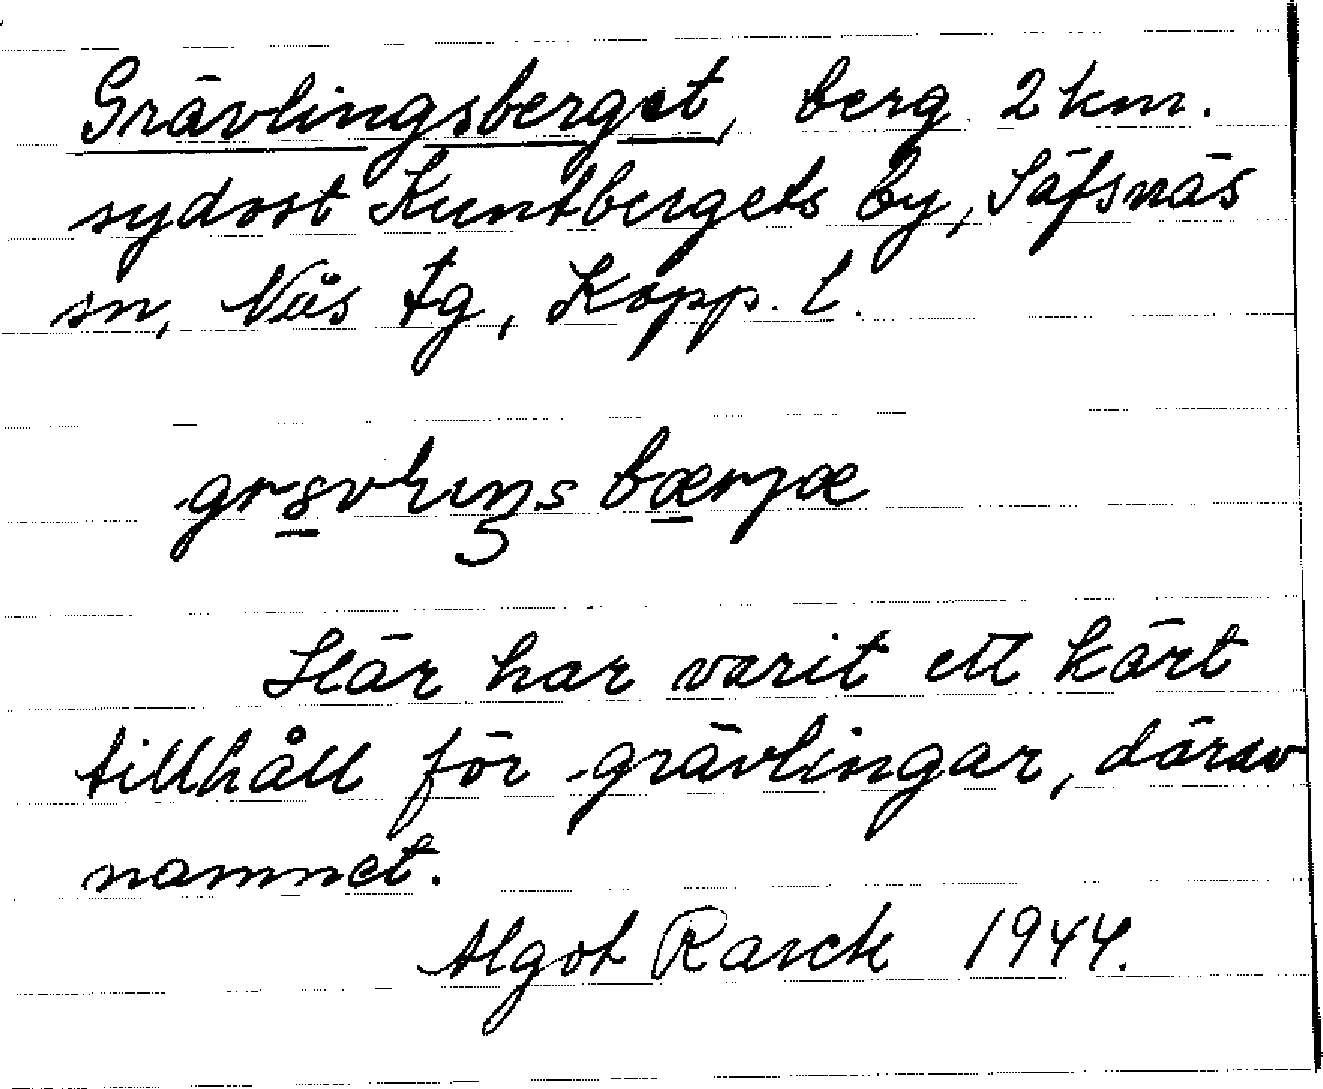 Grävlingsberget, berg 2 km.
sydost Kuntbergets by, Säfsnäs
sn, Nås tg, Kopp. l.
bærjæ
Här har varit ett kärt
tillhåll för grävlingar, därav
namnet.
Algot Rarck 1944.